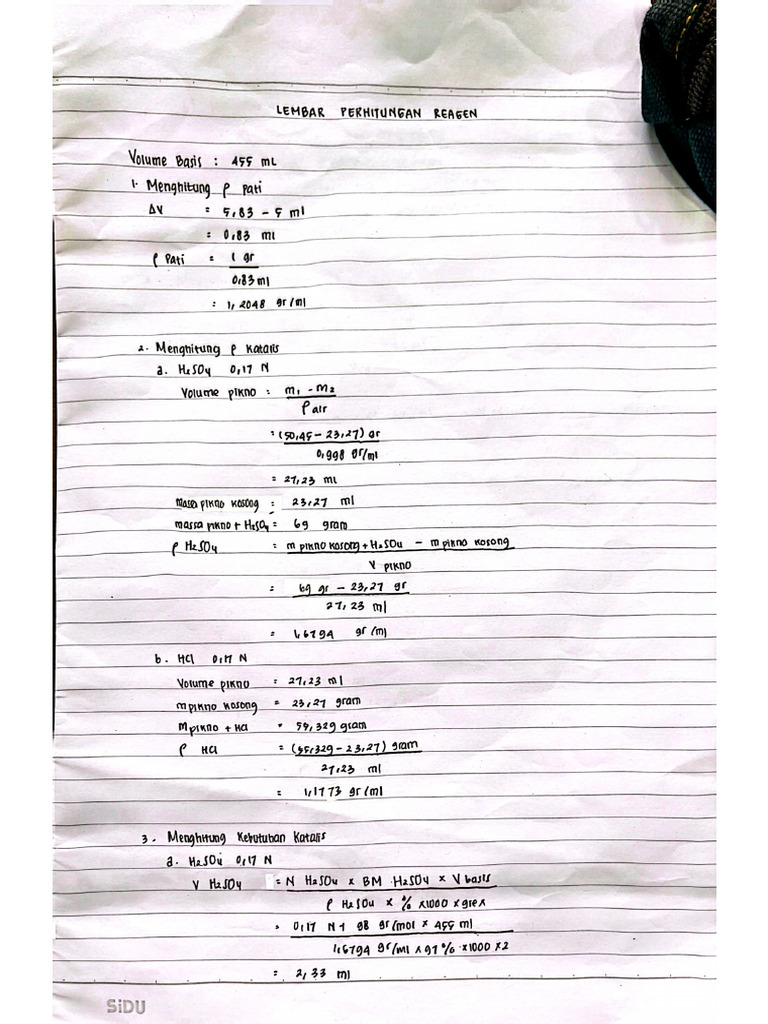 LEMBAR PERHITUNGAN REAGEN
Volume Basis : 455 mL
1. Menghitung ρ Pati
ΔV = 5,83 - 5 ml
= 0,83 ml
ρ Pati = 1 gr
0,83 ml
= 1,2048 gr/ml
2. Menghitung ρ Katalis
a. H2SO4 0,17 N
Volume pikno = m1 - m2
ρ air
= (50,45 - 23,27) gr
0,998 gr/ml
= 27,23 ml
massa pikno kosong = 23,27 ml
massa pikno + H2SO4 = 69 gram
ρ H2SO4 = m pikno kosong + H2SO4 - m pikno kosong
V pikno
= 69 gr - 23,27 gr
27,23 ml
= 1,6794 gr/ml
b. HCl 0,17 N
Volume pikno = 27,23 ml
m pikno kosong = 23,27 gram
M pikno + HCl = 55,329 gram
ρ HCl = (55,329 - 23,27) gram
27,23 ml
= 1,1773 gr/ml
3. Menghitung Kebutuhan Katalis
a. H2SO4 0,17 N
V H2SO4 = N H2SO4 x BM H2SO4 x V basis
ρ H2SO4 x % x 1000 x grek
= 0,17 N + 98 gr/mol x 455 ml
1,6794 gr/ml x 97% x 1000 x 2
= 2,33 ml
SiDU